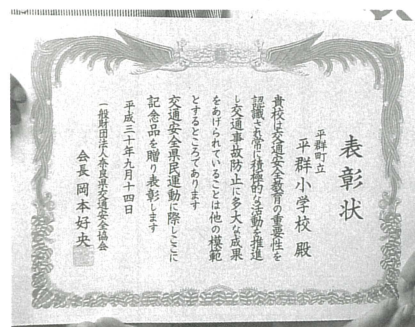 表彰状
平群町立
平群小学校 殿
貴校は交通安全教育の重要性を
認識され常に積極的な活動を推進
し交通事故防止に多大な成果
をあげられていることは他の模範
とするところであります
交通安全県民運動に際しここに
記念品を贈り表彰します
平成三十年九月十四日
一般財団法人奈良県交通安全協会
会長 岡本好央